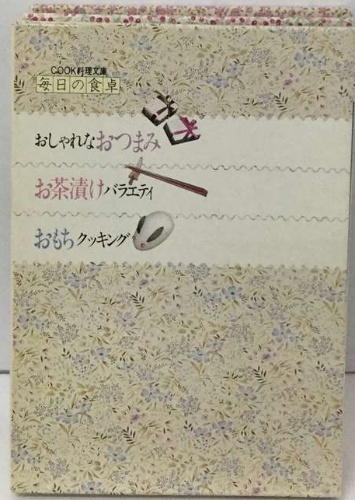 COOK料理文庫
毎日の食卓
おしゃれなおつまみ
お茶漬けバラエティ
おもちクッキング